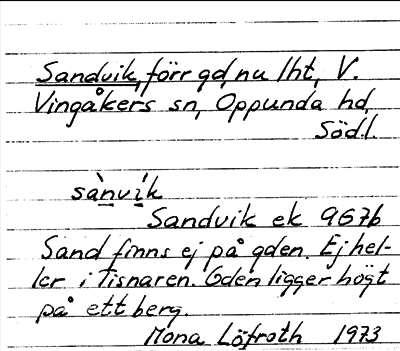 Sandvik, förr gd, nu lht, V.
Vingåkers sn, Oppunda hd,
Södl.
sànvík
Sandvik ek 9G7b
Sand finns ej på gden. Ej hel-
ler i Tisnaren. Gden ligger högt
på ett berg.
Mona Löfroth 1973